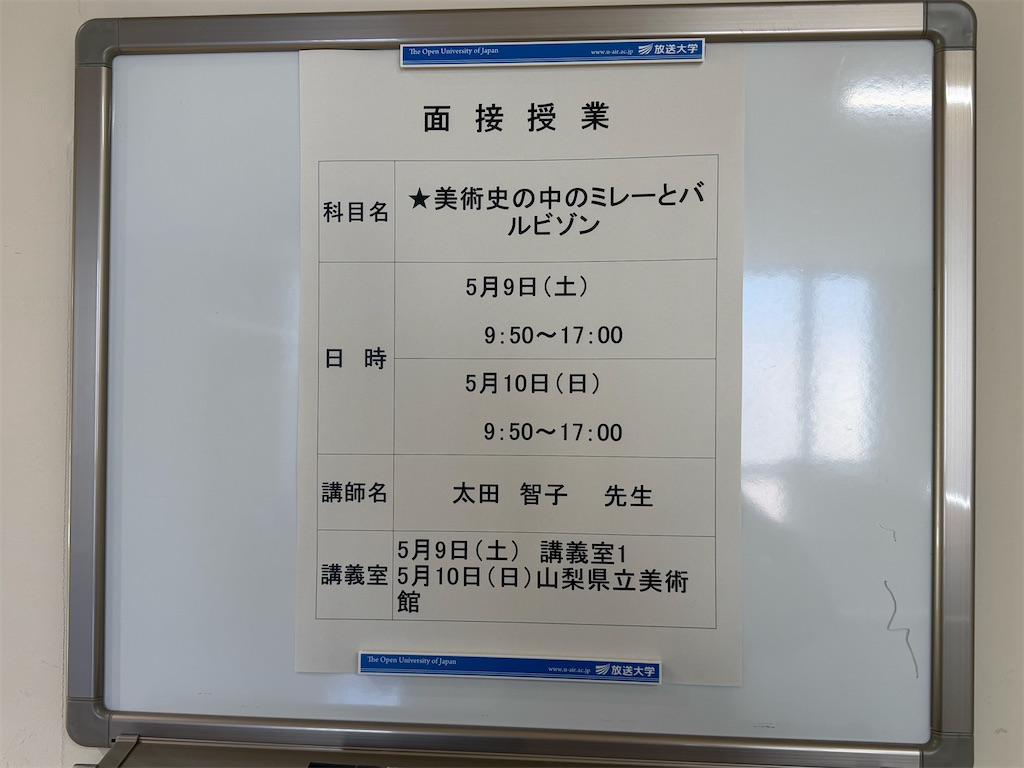 The Open University of Japan www.u-air.ac.jp 放送大学
面接授業
科目名
★美術史の中のミレーとバ
ルビゾン
日 時
5月9日(土)
9:50~17:00
5月10日(日)
9:50~17:00
講師名
太田 智子 先生
講義室
5月9日(土) 講義室1
5月10日(日)山梨県立美術
館
The Open University of Japan www.u-air.ac.jp 放送大学